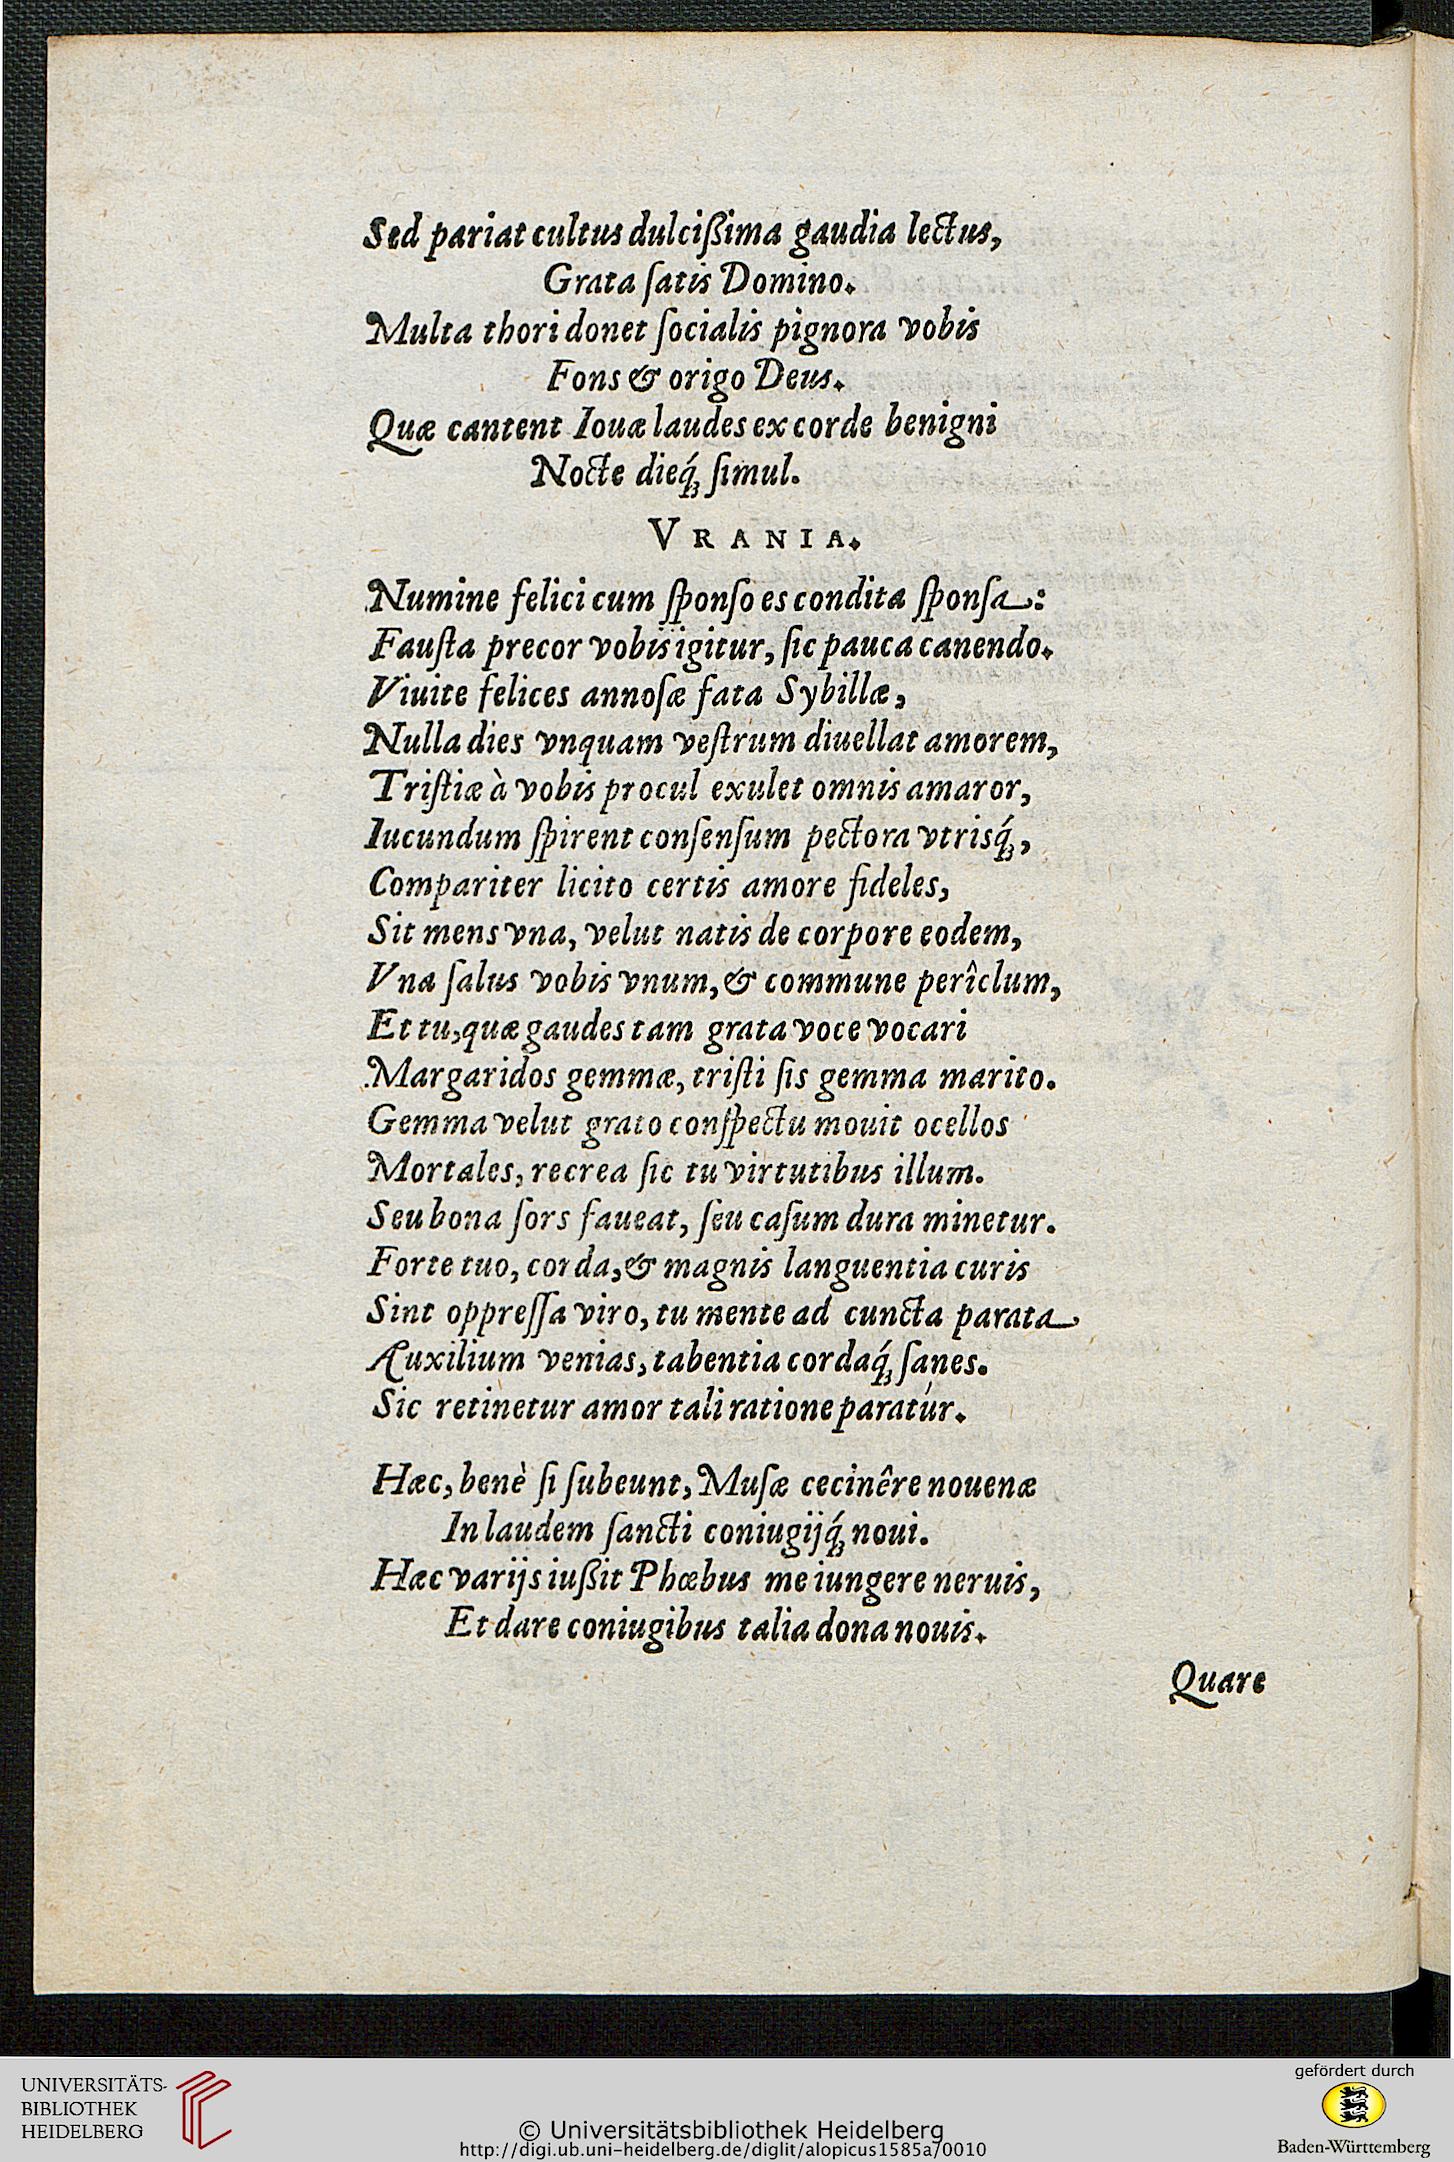 Sed pariat cultus dulcißima gaudia lectus,
Grata ſatis Domino.
Multa thori donet ſocialis pignora vobis
Fons & origo Deus.
Quæ cantent Iouæ laudes ex corde benigni
Nocte dieq́ꝫ ſimul.
VRANIA.
Numine felici cum ſponſo es condita ſponſa:
Fauſta precor vobis igitur, ſic pauca canendo.
Viuite felices annoſæ fata Sybillæ,
Nulla dies vnquam veſtrum diuellat amorem,
Triſtiæ à vobis procul exulet omnis amaror,
Iucundum ſpirent conſenſum pectora vtrisq́ꝫ,
Compariter licito certis amore fideles,
Sit mens vna, velut natis de corpore eodem,
Vna ſalus vobis vnum, & commune perîclum,
Et tu, quæ gaudes tam grata voce vocari
Margaridos gemmæ, triſti ſis gemma marito.
Gemma velut grato conſpectu mouit ocellos
Mortales, recrea ſic tu virtutibus illum.
Seu bona ſors faueat, ſeu caſum dura minetur.
Forte tuo, corda, & magnis languentia curis
Sint oppreſſa viro, tu mente ad cuncta parata
Auxilium venias, tabentia cordaq́ꝫ ſanes.
Sic retinetur amor tali ratione paratur.
Hæc, benè ſi ſubeunt, Muſæ cecinêre nouenæ
In laudem ſancti coniugijq́ꝫ noui.
Hæc varijs iußit Phœbus me iungere neruis,
Et dare coniugibus talia dona nouis.
Quare
UNIVERSITÄTS-
BIBLIOTHEK
HEIDELBERG
© Universitätsbibliothek Heidelberg
http://digi.ub.uni-heidelberg.de/diglit/alopicus1585a/0010
gefördert durch
Baden-Württemberg